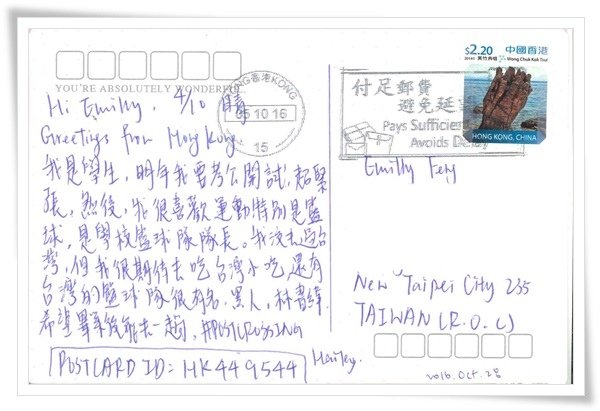 YOU'RE ABSOLUTELY WONDERFUL
Hi Emilly, 4/10 晴
Greetings from Hong Kong
我是學生,明年我要考公開試,超緊
張,然後,我很喜歡運動特別是籃
球,是學校籃球隊隊長。我沒去過台
灣,但我很期待去吃台灣小吃,還有
台灣的籃球隊很有名,黑人,林書緯.
希望畢業後能去一趟,#POSTCROSSING
POSTCARD ID: HK449544
Hailey.
香港 KONG
05 10 16
15
付足郵費
避免延
Pays Sufficie
Avoids De
$2.20 中國香港
Wong Chuk Kok Tsui
HONG KONG, CHINA
Emilly
New Taipei City 235
TAIWAN (R.O.C)
2016.Oct.28